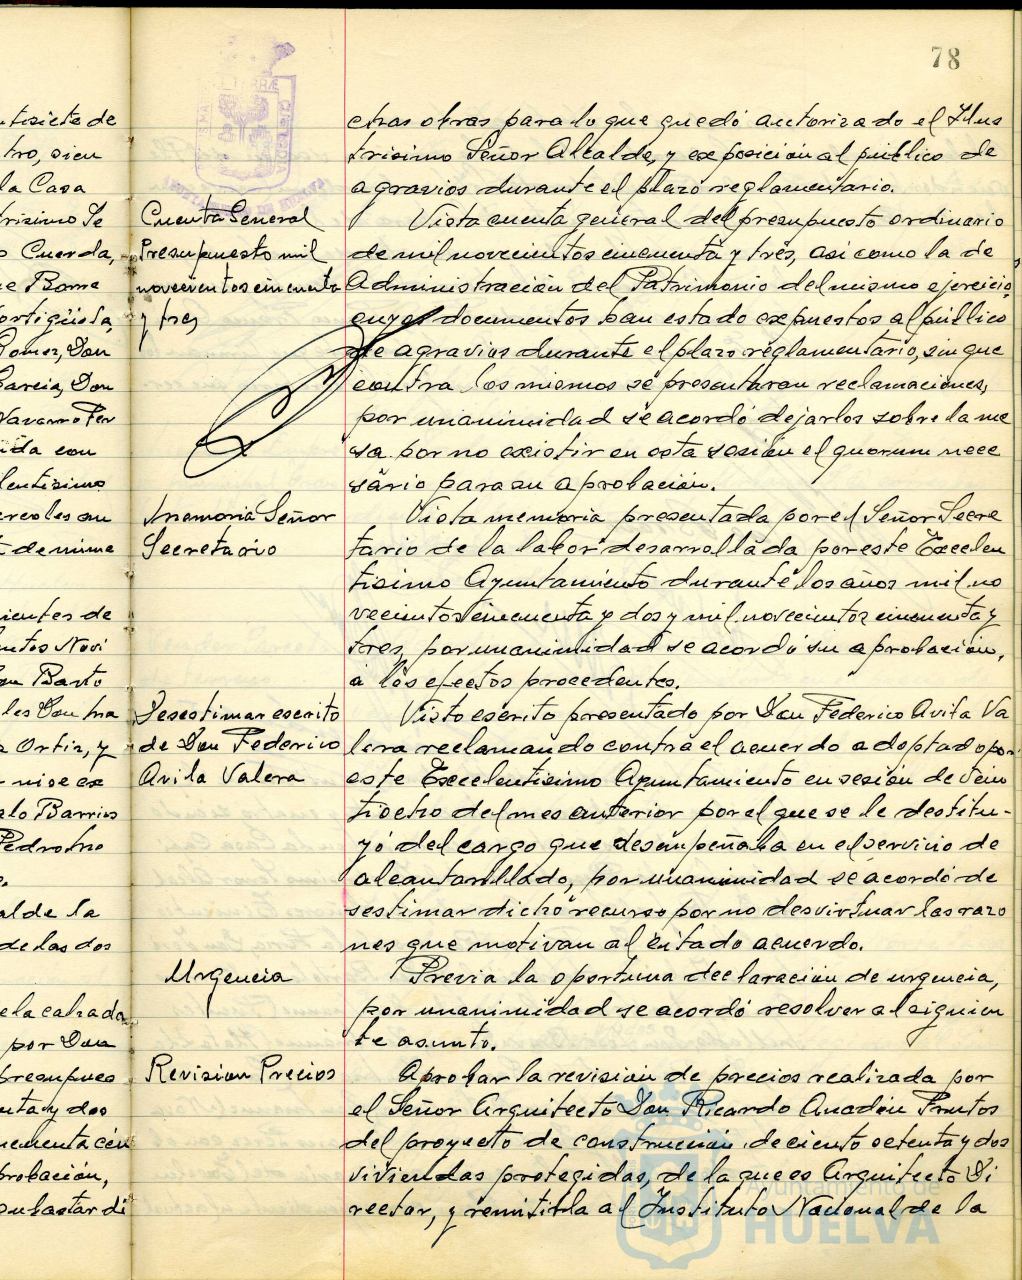 78
ntisiete de
tro, sien
la Casa
trisimo Se
o Cuerda,
e Borre
ortigüela,
Gomez, Don
Garcia, Don
Navarro Fer
ida con
lentisimo
ercoles an
t de nime
ientes de
untos Novi
on Barto
les Don Fra
a Ortiz, y
r nise ex
elo Barrios
Pedro Ino
alde la
de las dos
e la calzada
por Don
presupues
nta y dos
ncuenta cén
probación,
subastar di
Cuenta General
Presupuesto mil
novecientos cincuenta
y tres
Memoria Señor
Secretario
Desestimar escrito
de Don Federico
Avila Valera
Urgencia
Revision Precios
chas obras para lo que quedó autorizado el Ilus
trisimo Señor Alcalde, y exposición al público de
agravios durante el plazo reglamentario.
Vista cuenta general del presupuesto ordinario
de mil novecientos cincuenta y trés, asi como la de
Administración del Patrimonio del mismo ejercicio,
cuyos documentos han estado expuestos al público
de agravios durante el plazo reglamentario, sin que
contra los mismos se presentaran reclamaciones,
por unanimidad se acordó dejarlos sobre la me
sa por no existir en esta sesión el quorum nece
sário para su aprobación.
Vista memoria presentada por el Señor Secre
tario de la labor desarrollada por este Excelen
tisimo Ayuntamiento durante los años mil no
vecientos cincuenta y dos y mil novecientos cincuenta y
tres, por unanimidad se acordó su aprobación,
a los efectos procedentes.
Visto escrito presentado por Don Federico Avila Va
lera reclamando contra el acuerdo adoptado por
este Excelentisimo Ayuntamiento en sesión de vein
tiocho del mes anterior por el que se le destitu-
yó del cargo que desempeñaba en el servicio de
alcantarillado, por unanimidad se acordó de
sestimar dicho recurso por no desvirtuar las razo
nes que motivan al citado acuerdo.
Previa la oportuna declaración de urgencia,
por unanimidad se acordó resolver al siguien
te asunto.
Aprobar la revisión de precios realizada por
el Señor Arquitecto Don Ricardo Anadón Frutos
del proyecto de construcción de ciento setenta y dos
viviendas protegidas, de la que es Arquitecto Di
rector, y remitirla al Instituto Nacional de la
Ayuntamiento de
HUELVA